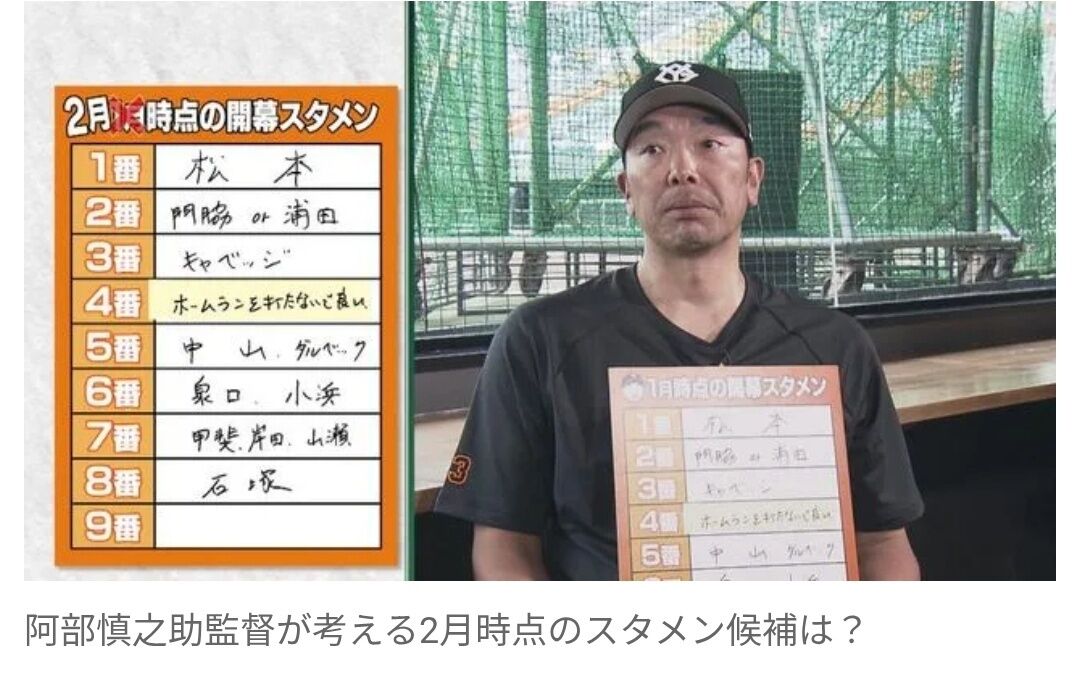 2月 時点の開幕スタメン
1番 松本
2番 門脇 or 浦田
3番 キャベッジ
4番 ホームランを打たないで良い
5番 中山、ダルベック
6番 泉口、小浜
7番 甲斐、岸田、山瀬
8番 石塚
9番
YG
3
1月時点の開幕スタメン
1番 松本
2番 門脇 or 浦田
3番
4番 ホームランを打たないで良い
5番 中山 ダルベック
阿部慎之助監督が考える2月時点のスタメン候補は？